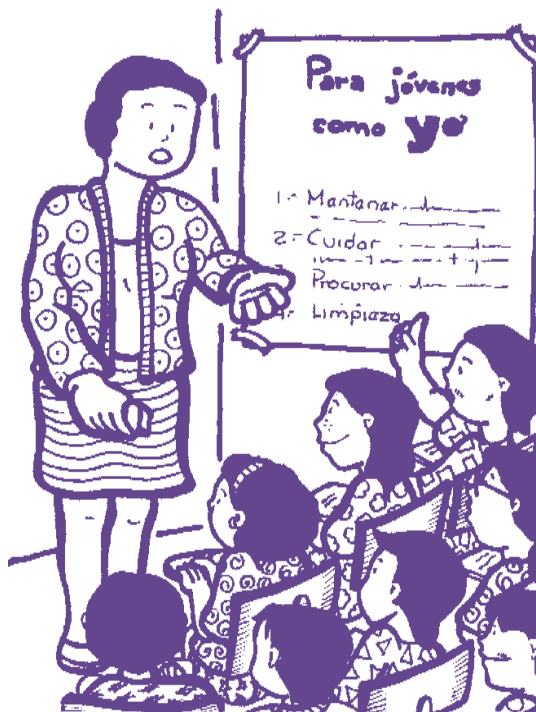 Para jóvenes
como yo
1.- Mantanar
2.- Cuidar
Procurar
Limpieza